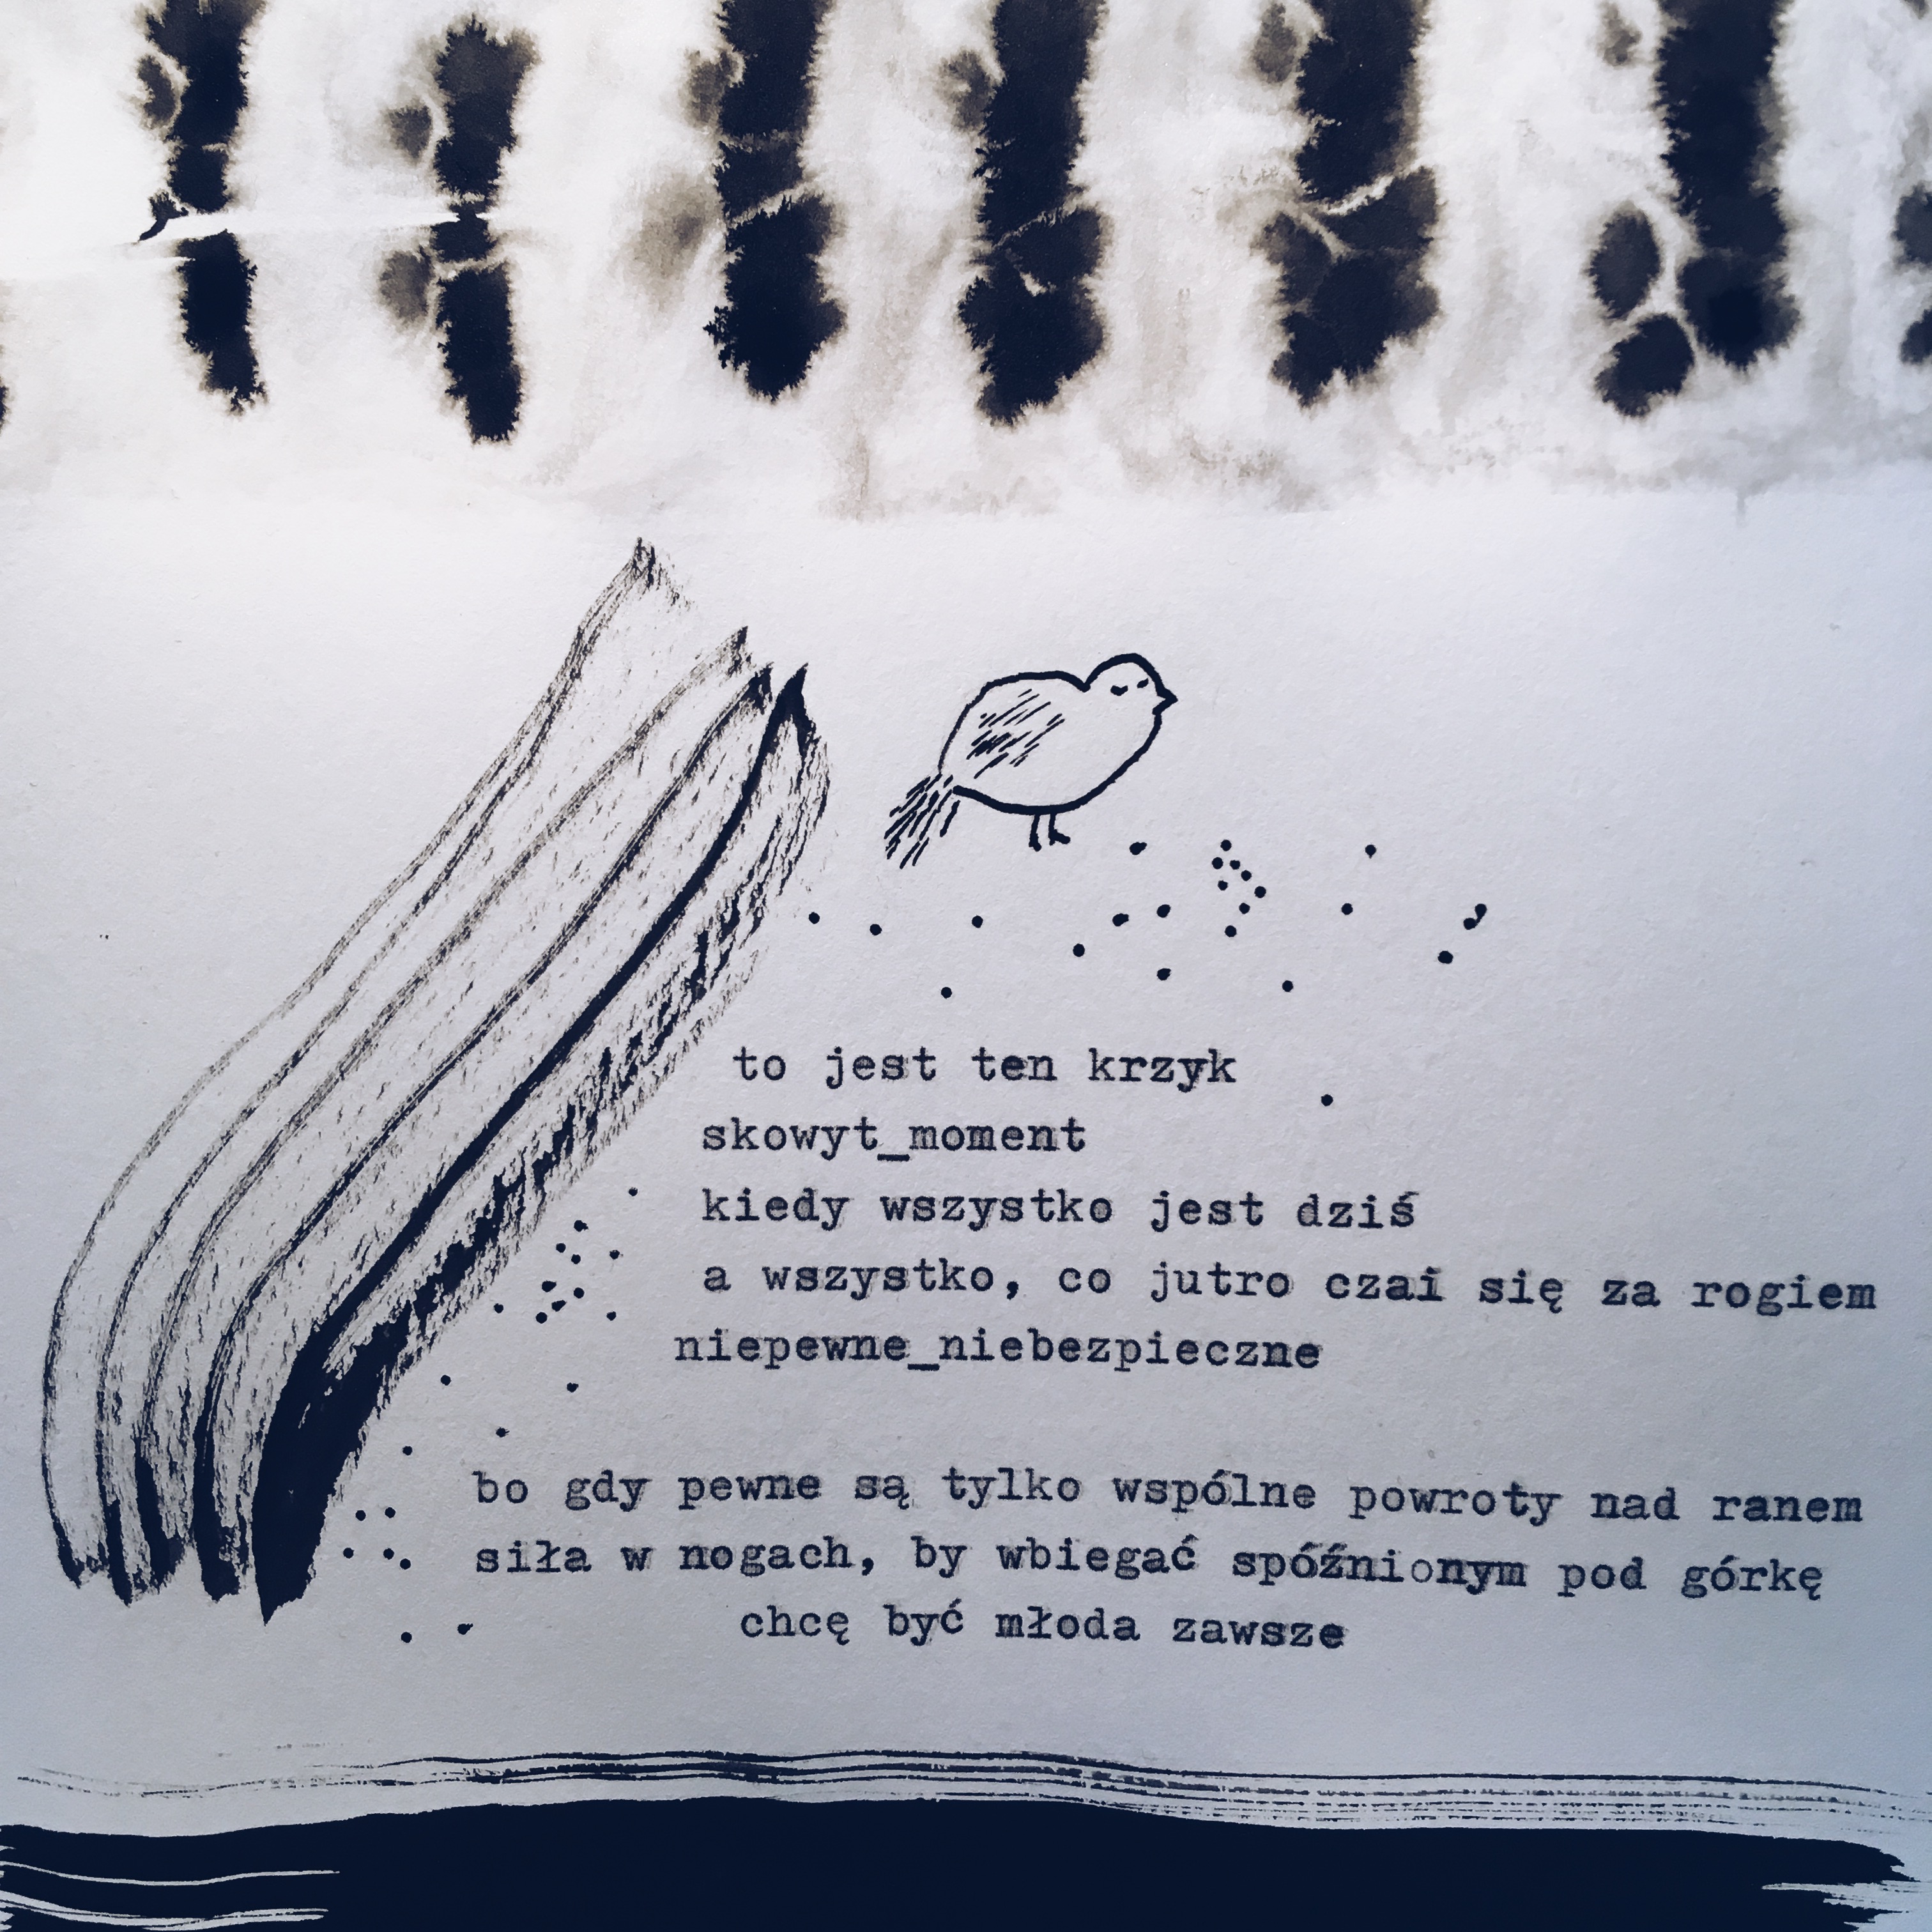 to jest ten krzyk
skowyt_moment
kiedy wszystko jest dziś
a wszystko, co jutro czai się za rogiem
niepewne_niebezpieczne
bo gdy pewne są tylko wspólne powroty nad ranem
siła w nogach, by wbiegać spóźnionym pod górkę
chcę być młoda zawsze